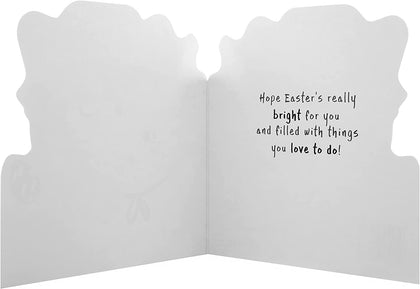 Hope Easter's really
bright for you
and filled with things
you love to do!